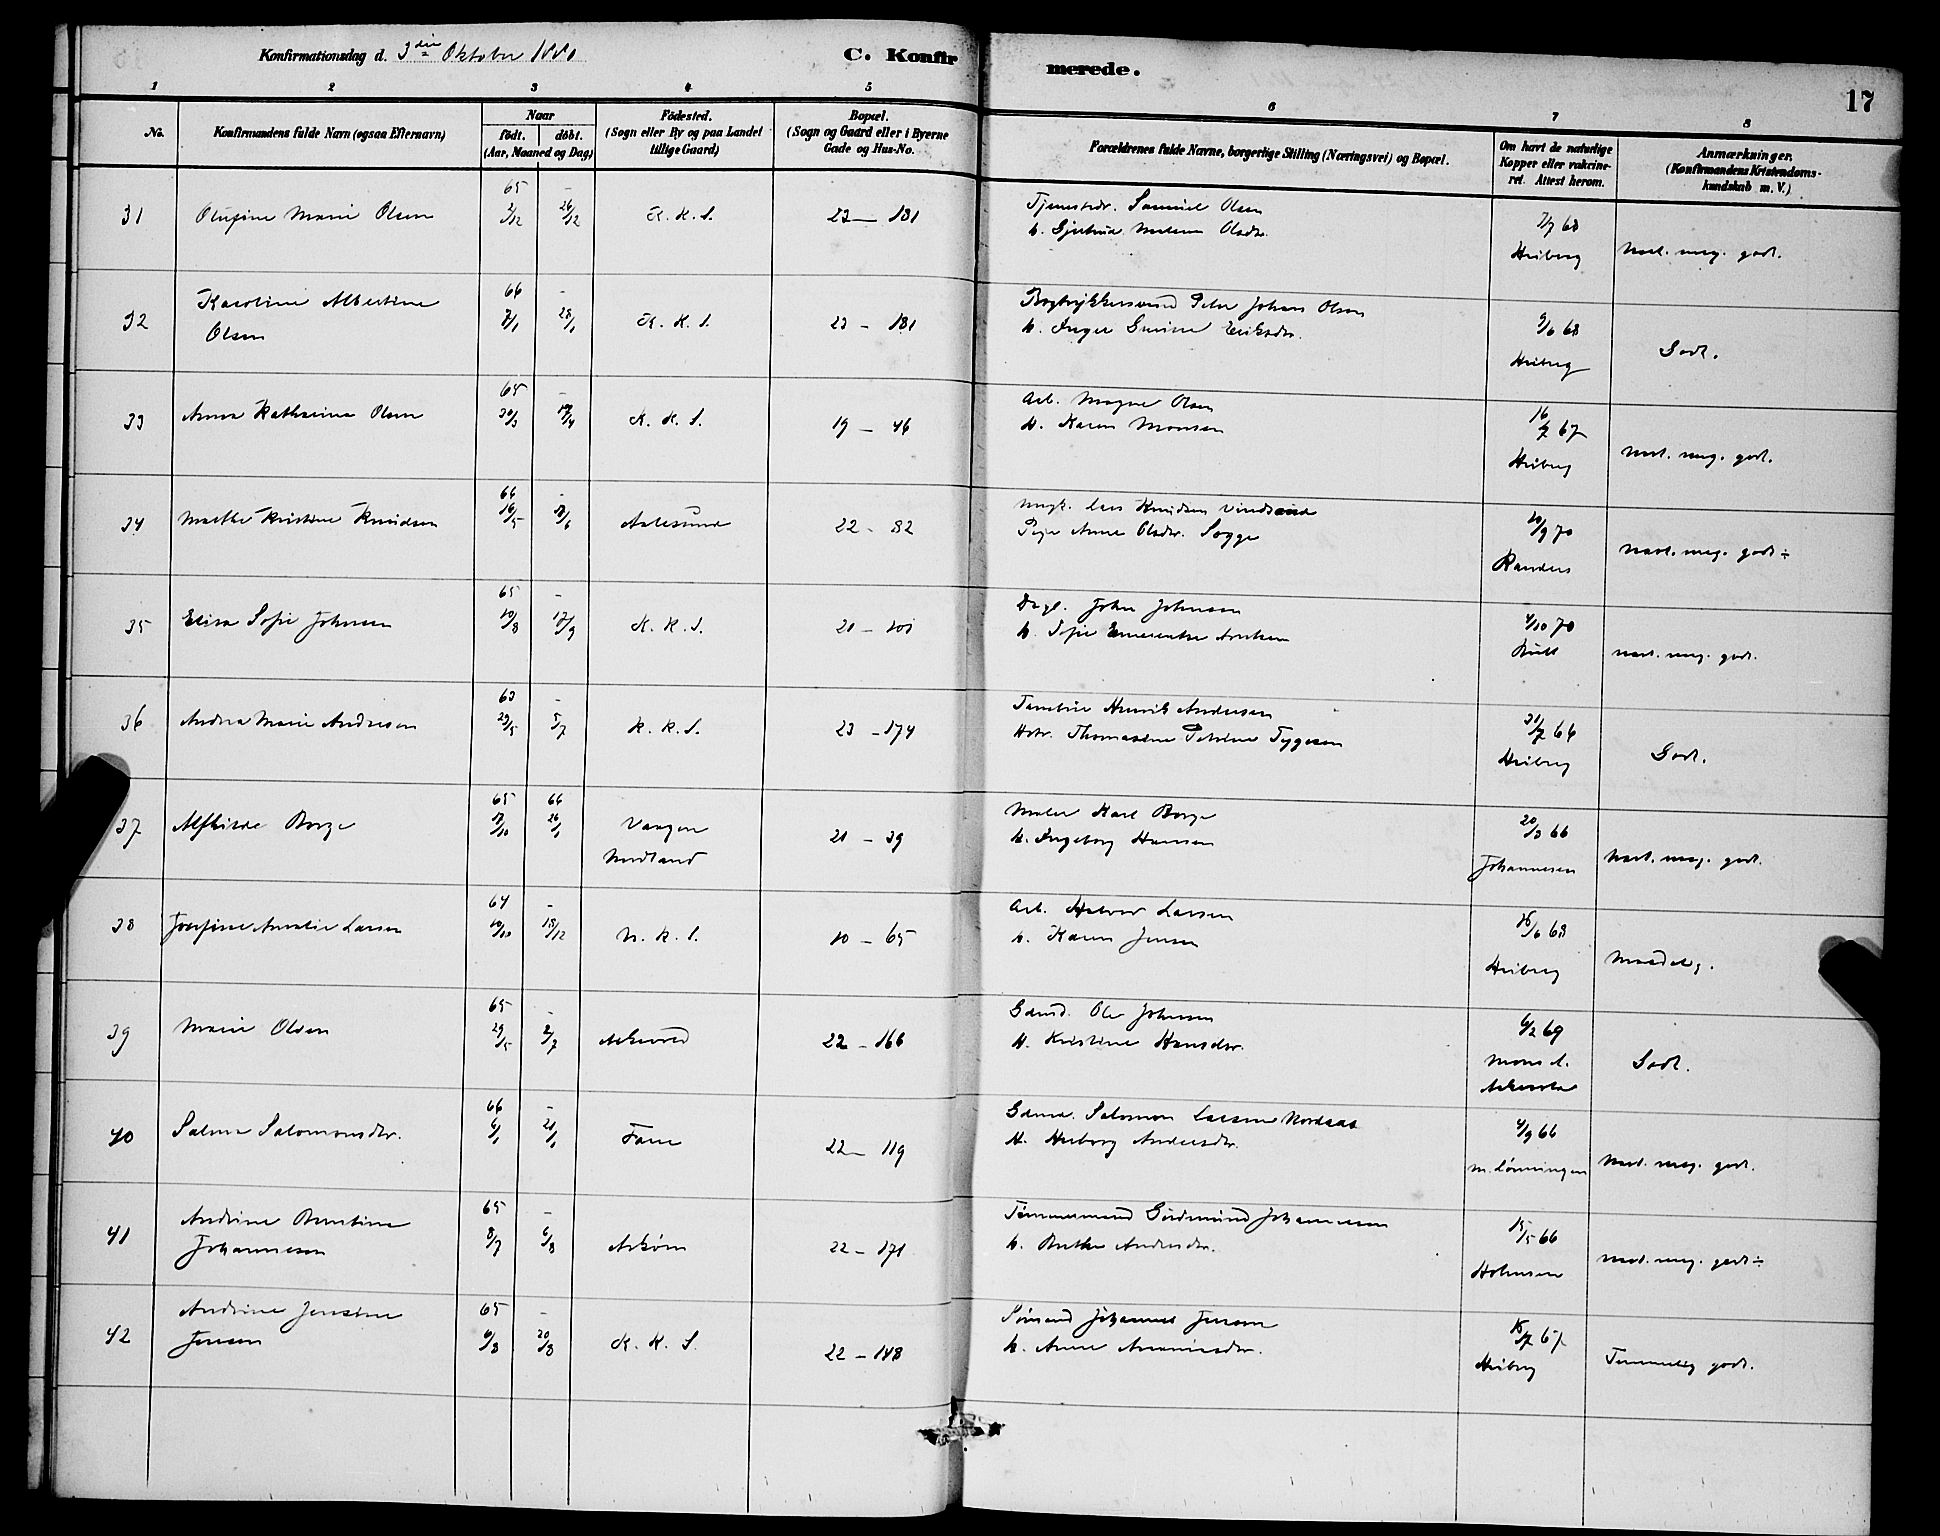 Konfirmationsdag d. 3die Oktober 1880
C. Konfirmerede.
17
1 2 3 4 5 6 7 8
No.
Konfirmandens fulde Navn (ogsaa Efternavn)
Naar
födt. döbt.
(Aar, Maaned og Dag)
Födested.
(Sogn eller By og paa Landet
tillige Gaard)
Bopæl.
(Sogn og Gaard eller i Byerne
Gade og Hus-No.
Forældrenes fulde Navne, borgerlige Stilling (Næringsvei) og Bopæl.
Om havt de naturlige
Kopper eller vakcine-
ret. Attest herom.
Anmærkninger.
(Konfirmandens Kristendoms-
kundskab m. V.)
31 Olufine Marie Olsen 65 2/12 - 26/12 K. K. S. 23 - 181
Tjenestkr. Samuel Olsen
h. Gjertrud Olsdr.
7/7 68
Heiberg
Næst. meg. godt.
32 Karoline Albertine
Olsen
66 7/1 - 28/1 K. K. S. 23 - 181
Bogtrykkersvend Peter Johan Olsen
h. Inger Eriksdr.
9/6 68
Heiberg
Godt.
33 Anna Kathrine Olsen 65 30/3 - 17/4 K. K. S. 19 - 46
Arb. Mogne Olsen
h. Karen Monsen
16/7 67
Heiberg
næst. meg. godt.
34 Marthe Kristine Knudsen 66 16/5 - 17/6 Aalesund 22 - 82
Ungk. Lars Knudsen
Pige Anne Olsdr. Sogge
20/9 70
Randers
næst. meg. godt ÷
35 Elisa Sofie Johnsen 65 19/8 - 17/9 K. K. S. 21 - 101
Dagl. John Johnsen
h. Sofie Emerentse
4/10 70
næst. meg. godt.
36 Andrea Marie Andersen 63 29/5 - 5/7 K. K. S. 23 - 174
Henrik Andersen
Hstr. Thomasine Petrine Tygesen
21/7 64
Heiberg
Godt.
37 Alfhilde Borge 65 17/10 66 26/1 Vaagen
Nordland
21 - 39
Maler Karl Borge
h. Ingeborg Hansen
20/3 66
Johannesen
Næst. meg. godt.
38 Josefine Amalie Larsen 64 10/10 - 18/12 N. K. S. 10 - 65
Arb. Halvor Larsen
h. Karen Jensen
18/6 68
Heiberg
Maadelig.
39 Marie Olsen 65 29/5 - 2/7 Askevold 22 - 166
Gdmd. Ole Johnsen
h. Kristine Hansdr.
6/2 69
Mons A.
Godt.
40 Salmine Salomonsdtr. 66 6/1 - 21/1 Fane 22 - 119
Gdmd. Salomon Larsen Nordaas
h. Herborg Andersdr.
4/9 66
M. Lönningen
Næst. meg. godt.
41 Andrine Berntine
Johannesen
65 8/7 - 6/8 Asköen 22 - 171
Tømmermand Gudmund Johannesen
h. Berthe Andersdr.
15/5 66
Holmsen
næst. meg. godt ÷
42 Andrine Jensine
Jensen
65 6/8 - 20/8 K. K. S. 22 - 148
Sömand Johannes Jensen
h. Anne
15/7 67
Heiberg
Temmelig godt.